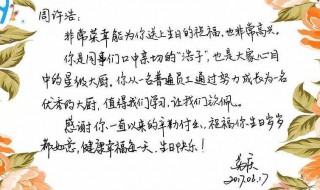 周许浩：
非常荣幸能为你送上生日的祝福，也非常高兴。
你是同事们口中亲切的“浩子”，也是大家心目
中的星级大厨。你从一名普通员工通过努力成长为一名
优秀的大厨，值得我们学习，让我们钦佩。
感谢你一直以来的辛勤付出，祝福你生日岁岁
都如意，健康幸福每一天，生日快乐！
2017.06.17